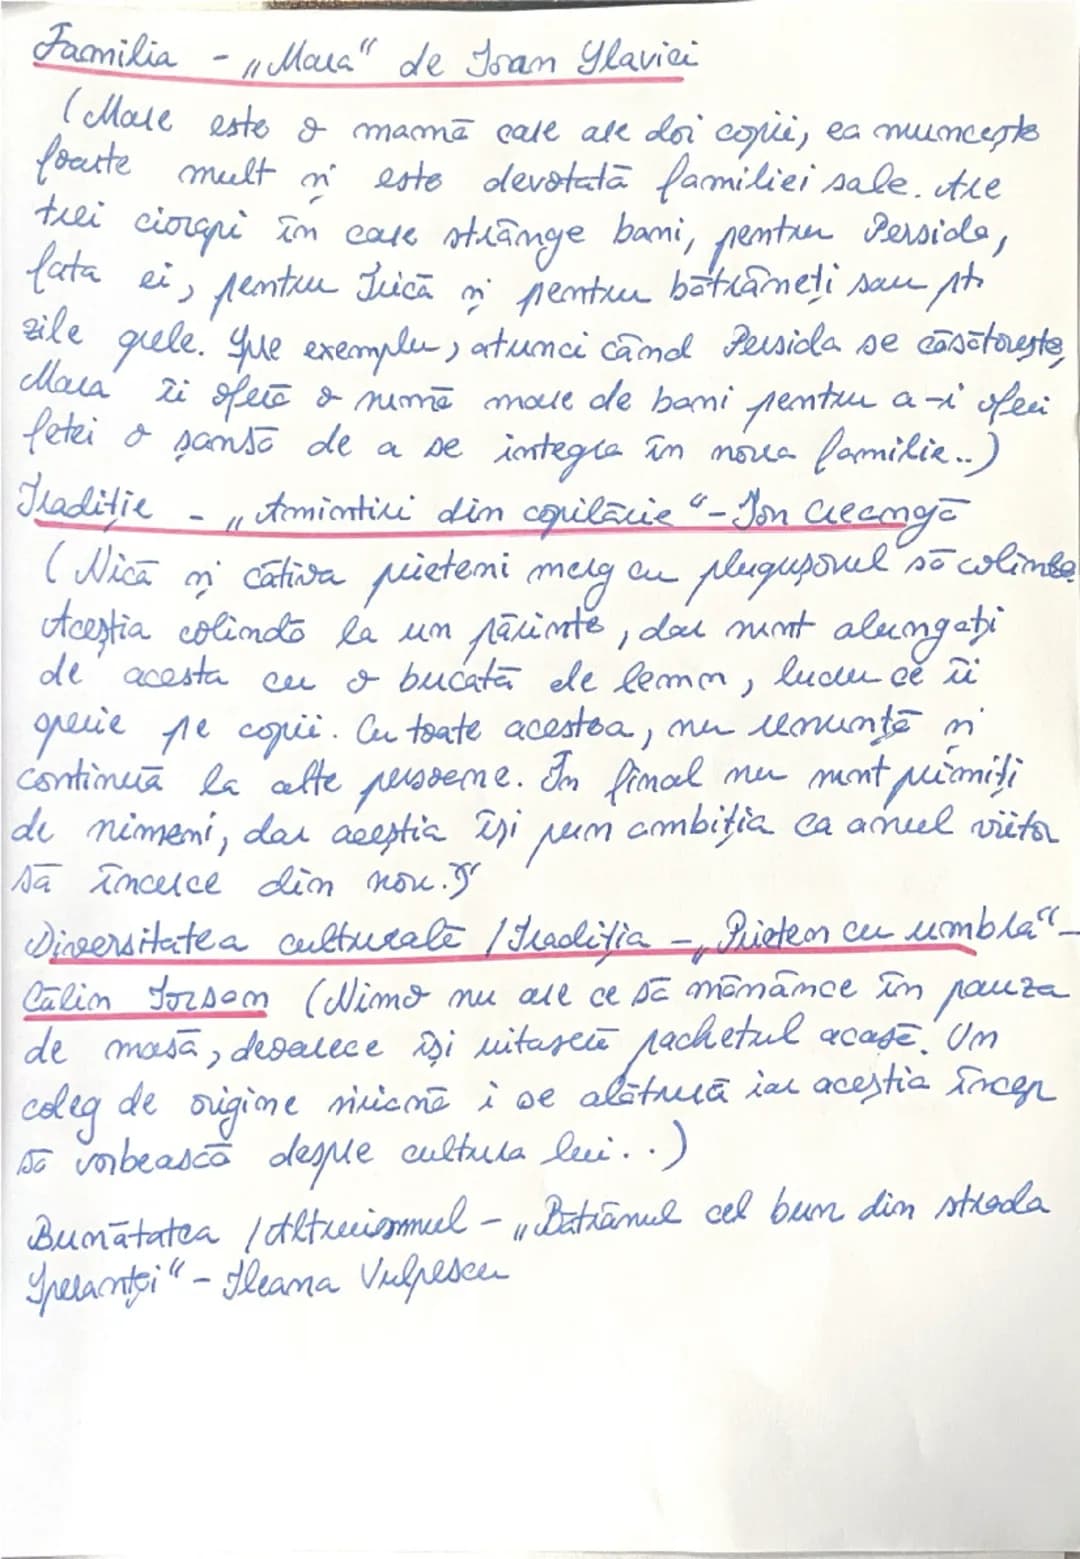 Familia - „Mara“ de Ioan Slavici
(Mara este o mamă care are doi copii, ea muncește
foarte mult și este devotată familiei sale. Are
trei ciorapi în care strânge bani, pentru Persida,
fata ei, pentru Trică și pentru bătrâneți sau pt
zile grele. Spre exemplu, atunci când Persida se căsătorește,
Mara îi oferă o sumă mare de bani pentru a-i oferi
fetei o șansă de a se integra în noua familie..)
Tradiție - „Amintiri din copilărie“ - Ion Creangă
(Nică și câtiva prieteni merg cu plugușorul să colinde.
Aceștia colindă la un părinte, dar sunt alungați
de acesta cu o bucată de lemn, lucru ce îi
sperie pe copii. Cu toate acestea, nu renunță și
continuă la alte persoane. În final nu sunt primiți
de nimeni, dar aceștia își pun ambiția ca anul viitor
să încerce din nou.)
Diversitatea culturală / Tradiția - „Prieten cu umbra“ -
Călin Torsan (Nimo nu are ce să mănânce în pauza
de masă, deoarece își uitaseră pachetul acasă. Un
coleg de origine siriană i se alătură iar aceștia încep
să vorbească despre cultura lui...)
Bunătatea / Altruismul - „Bătrânul cel bun din strada
Speranței“ - Ileana Vulpescu